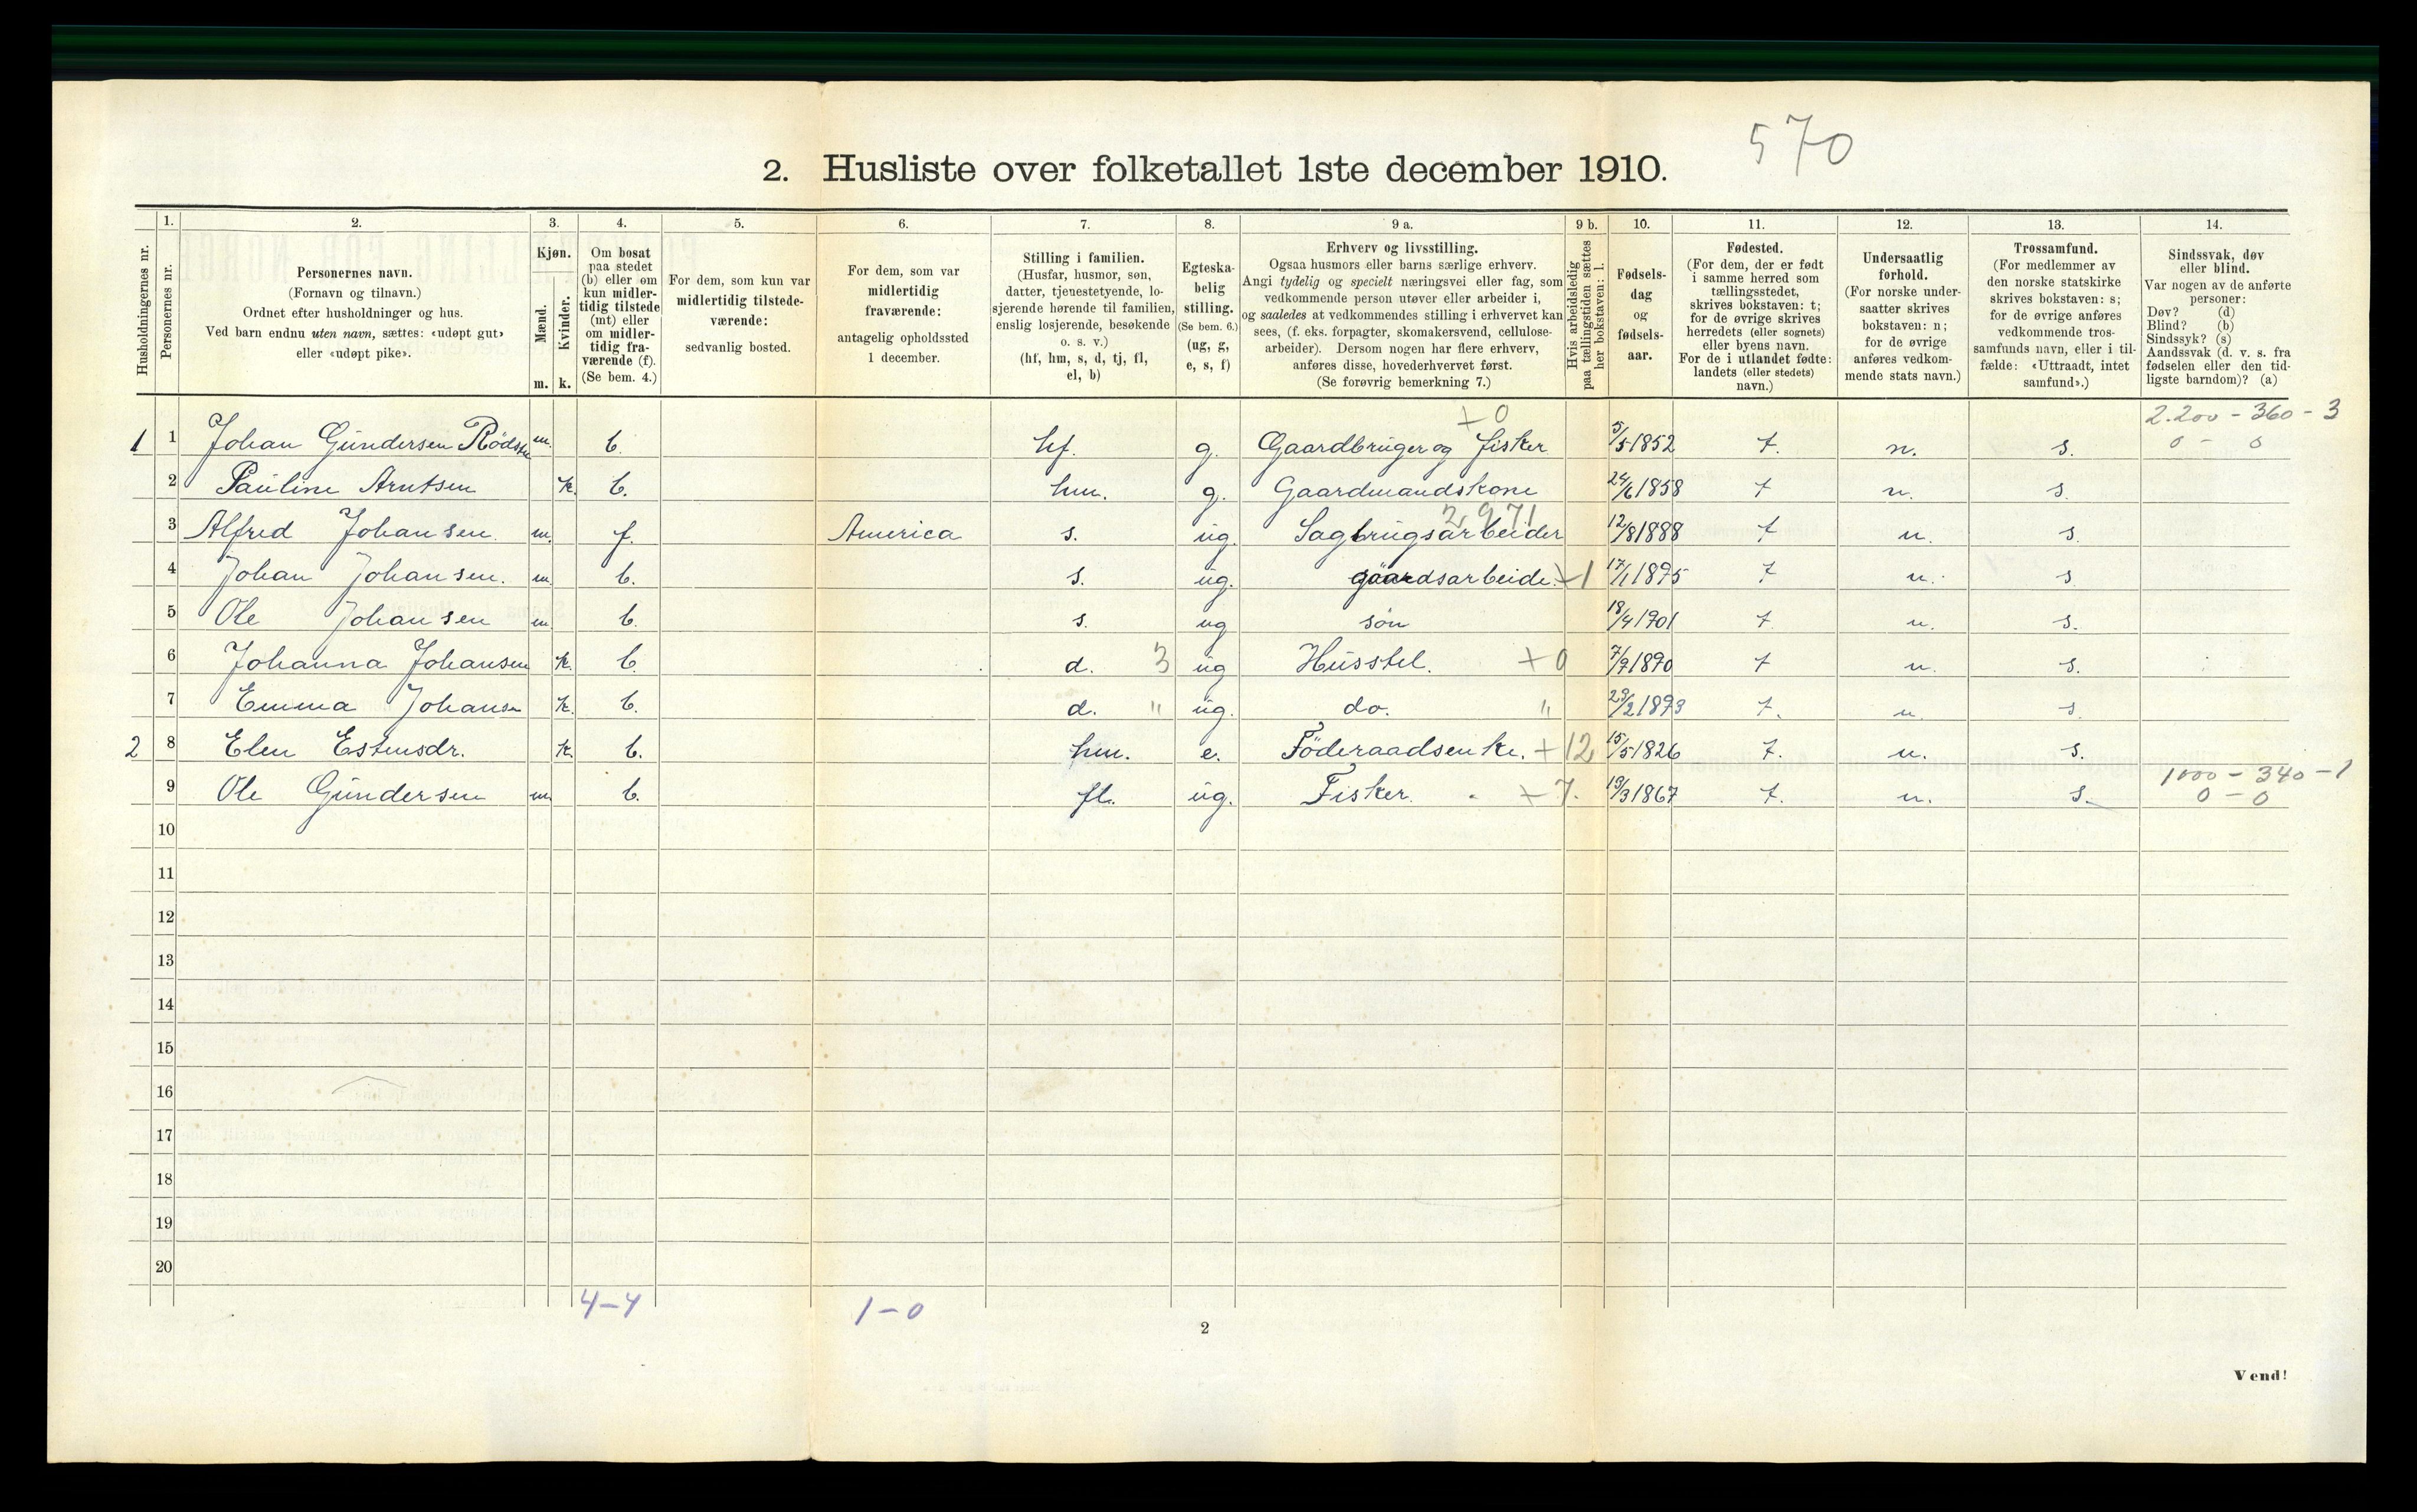 570
2. Husliste over folketallet 1ste december 1910.
Husholdningernes nr.
1.
Personernes nr.
2.
Personernes navn.
(Fornavn og tilnavn.)
Ordnet efter husholdninger og hus.
Ved barn endnu uten navn, sættes: «udøpt gut»
eller «udøpt pike».
3.
Kjøn.
Mænd.
Kvinder.
m. k.
4.
Om bosat
paa stedet
(b) eller om
kun midler-
tidig tilstede
(mt) eller
om midler-
tidig fra-
værende (f).
(Se bem. 4.)
5.
For dem, som kun var
midlertidig tilstede-
værende:
sedvanlig bosted.
6.
For dem, som var
midlertidig
fraværende:
antagelig opholdssted
1 december.
7.
Stilling i familien.
(Husfar, husmor, søn,
datter, tjenestetyende, lo-
sjerende hørende til familien,
enslig losjerende, besøkende
o. s. v.)
(hf, hm, s, d, tj, fl,
el, b)
8.
Egteska-
belig
stilling.
(Se bem. 6.)
(ug, g,
e, s, f)
9 a.
Erhverv og livsstilling.
Ogsaa husmors eller barns særlige erhverv.
Angi tydelig og specielt næringsvei eller fag, som
vedkommende person utøver eller arbeider i,
og saaledes at vedkommendes stilling i erhvervet kan
sees, (f. eks. forpagter, skomakersvend, cellulose-
arbeider). Dersom nogen har flere erhverv,
anføres disse, hovederhvervet først.
(Se forøvrig bemerkning 7.)
9 b.
Hvis arbeidsledig
paa tællingstiden sættes
her bokstaven: l.
10.
Fødsels-
dag
og
fødsels-
aar.
11.
Fødested.
(For dem, der er født
i samme herred som
tællingsstedet,
skrives bokstaven: t;
for de øvrige skrives
herredets (eller sognets)
eller byens navn.
For de i utlandet fødte:
landets (eller stedets)
navn.)
12.
Undersaatlig
forhold.
(For norske under-
saatter skrives
bokstaven: n;
for de øvrige
anføres vedkom-
mende stats navn.)
13.
Trossamfund.
(For medlemmer av
den norske statskirke
skrives bokstaven: s;
for de øvrige anføres
vedkommende tros-
samfunds navn, eller i til-
fælde: «Uttraadt, intet
samfund».)
14.
Sindssvak, døv
eller blind.
Var nogen av de anførte
personer:
Døv? (d)
Blind? (b)
Sindssyk? (s)
Aandssvak (d. v. s. fra
fødselen eller den tid-
ligste barndom)? (a)
+0 2.200 - 360 - 3
1 1 Johan Gundersen m. b. hf. g. Gaardbruger og fisker 5/5 1852 t. n. s. 0 - 0
2 Pauline Arntsen k. b. hm. g. Gaardmandskone 24/6 1858 t n. s.
2971
3 Alfred Johansen. m. f. America s. ug. Sagbrugsarbeider 12/8 1888 t n. s.
4 Johan Johansen. m. b. s. ug. gaardsarbeide. +1 17/1 1895 t n. s
5 Ole Johansen m b. s. ug søn 18/4 1901 t. n. s.
6 Johanna Johansen k. b. d. 3 ug Husstel. +0 7/7 1890 t n. s.
7 Emma Johansen k. b. d. " ug. do. " 29/2 1893 t. n. s.
2 8 Elen Estensdr. k. b. hm. e. Föderaadsenke. +12 15/5 1826 t. n. s.
1000 - 340 - 1
9 Ole Gundersen m. b. fl. ug. Fisker. +7. 19/3 1867 t. n. s. 0 - 0
10
11
12
13
14
15
16
17
18
19
20
4-4 1-0
2
Vend!